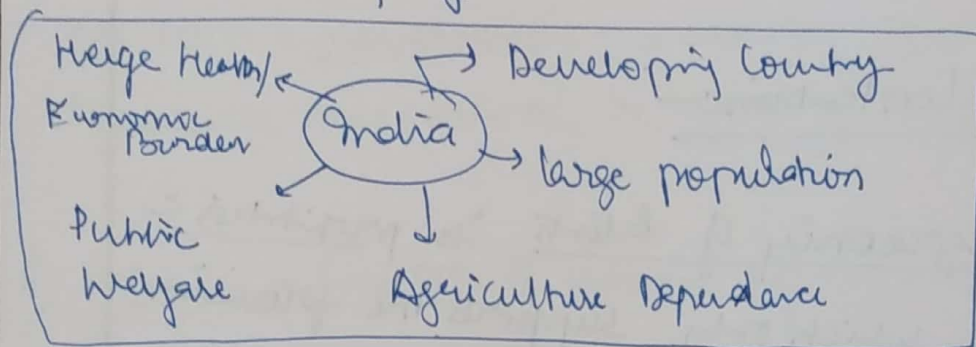 Huge Health/
Economic
Burden
India
Developing Country
large population
Public
Welfare
Agriculture Dependance